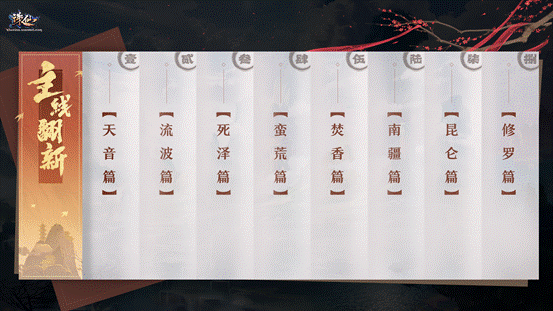 诛仙
主线翻新
壹
【天音篇】
贰
【流波篇】
叁
【死泽篇】
肆
【蛮荒篇】
伍
【焚香篇】
陆
【南疆篇】
柒
【昆仑篇】
捌
【修罗篇】